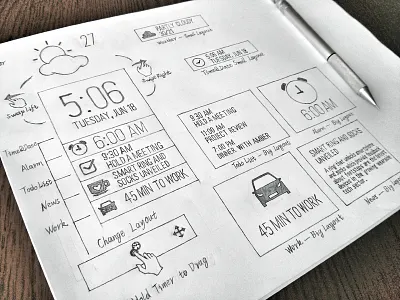 27
PARTLY CLOUDY
Weather - Small Layout
5:06 AM
TUESDAY, JUN 18
Time&Date - Small Layout
Swipe Left
Swipe Right
5:06
TUESDAY, JUN 18
6:00 AM
9:30 AM
HOLD A MEETING
SMART RING AND
SUCKS UNVEILED
45 MIN TO WORK
Time&Date
Alarm
Todo List
News
Work
Change Layout
Hold Timer to Drag
9:30 AM
HOLD A MEETING
11:00 AM
PROJECT REVIEW
7:00 PM
DINNER WITH AMBER
Todo List - Big Layout
6:00 AM
Alarm - Big Layout
45 MIN TO WORK
Work - Big Layout
SMART RING AND SOCKS
UNVEILED
News - Big Layout